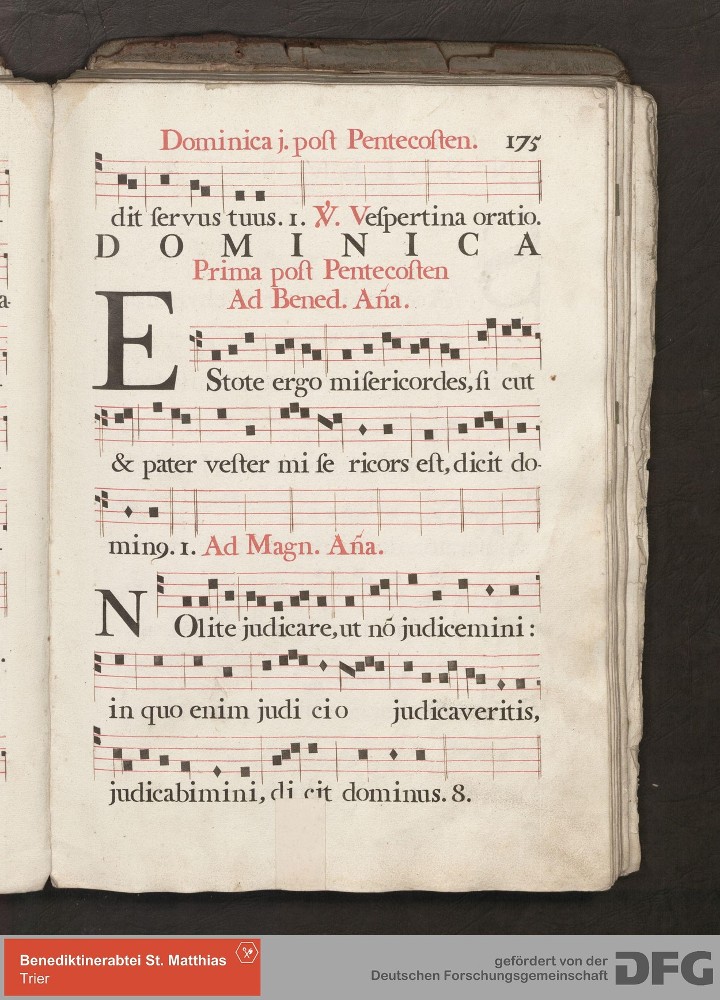 Dominica j. poſt Pentecoſten. 175
dit ſervus tuus. 1. ℣. Veſpertina oratio.
DOMINICA
Prima poſt Pentecoſten
Ad Bened. Aña.
EStote ergo miſericordes, ſi cut
& pater veſter mi ſe ricors eſt, dicit do-
minꝰ. 1. Ad Magn. Aña.
NOlite judicare, ut nõ judicemini:
in quo enim judi cio judicaveritis,
judicabimini, di cit dominus. 8.
a-
Benediktinerabtei St. Matthias
Trier
gefördert von der
Deutschen Forschungsgemeinschaft
DFG